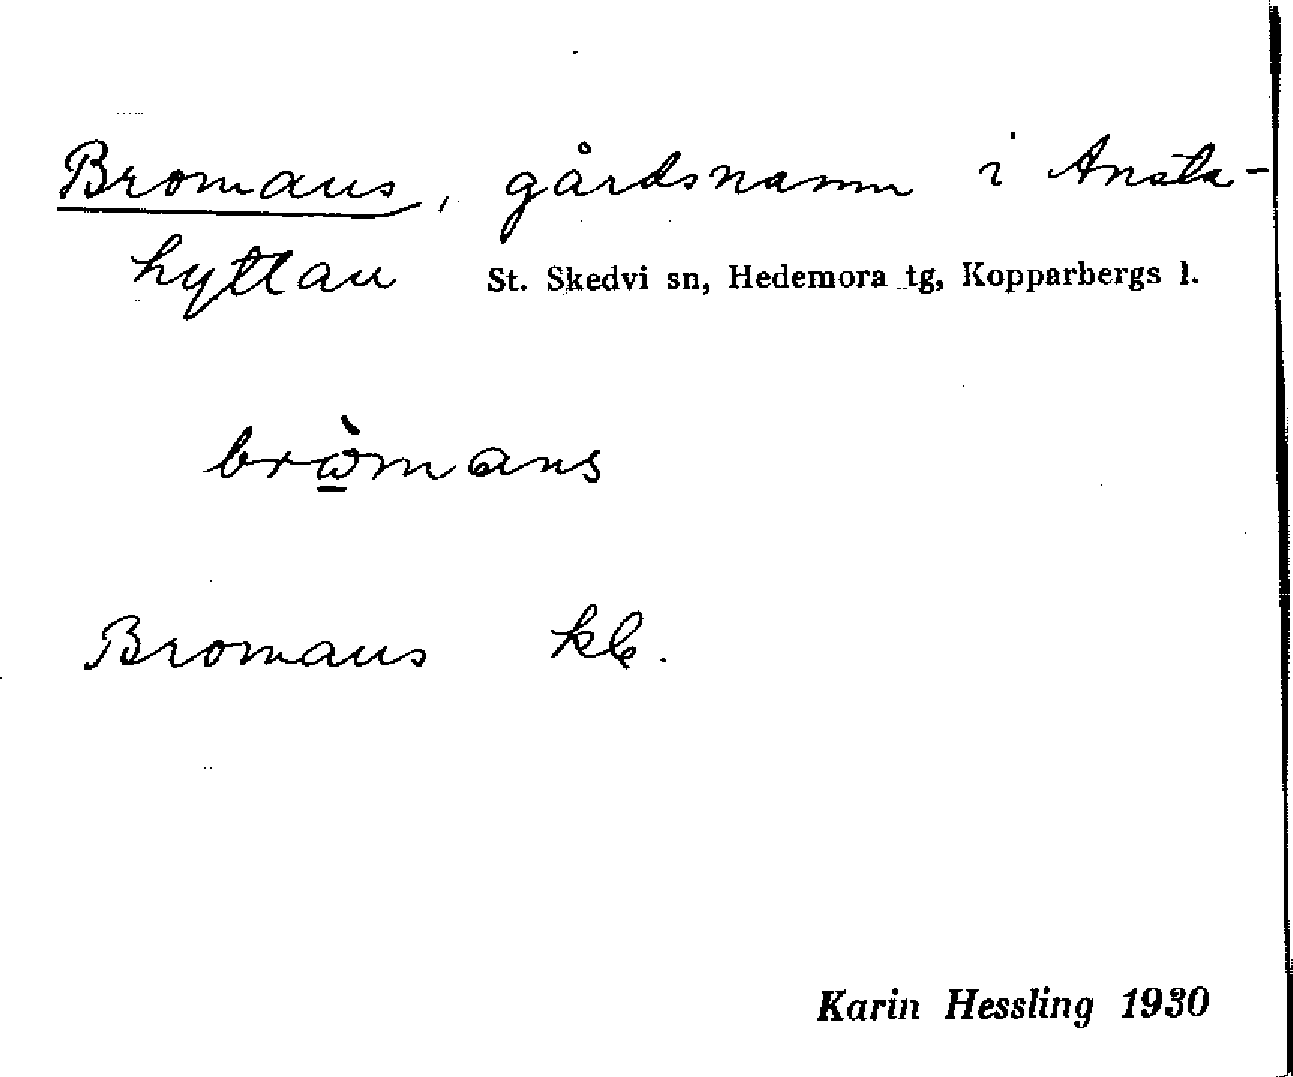 Bromans, gårdsnamn i Ansta-
hyttan St. Skedvi sn, Hedemora tg, Kopparbergs l.
brὼ̱mans
Bromans kb.
Karin Hessling 1930